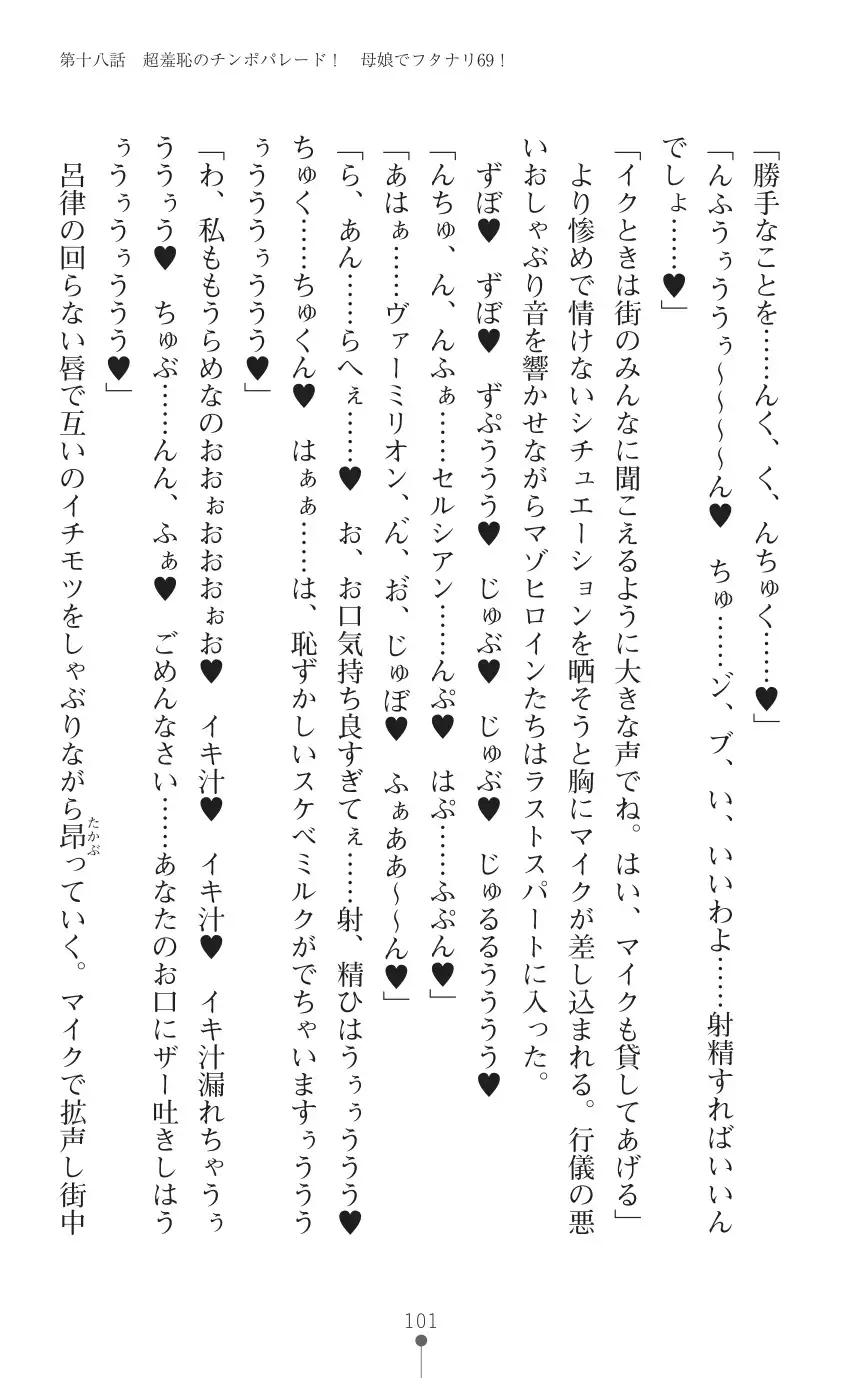 第十八話　超羞恥のチンポパレード！　母娘でフタナリ69！
「勝手なことを……んく、く、んちゅく……♥」
「んふうぅううぅ～～～～ん♥　ちゅ……ゾ、ブ、い、いいわよ……射精すればいいん
でしょ……♥」
「イクときは街のみんなに聞こえるように大きな声でね。はい、マイクも貸してあげる」
より惨めで情けないシチュエーションを晒そうと胸にマイクが差し込まれる。行儀の悪
いおしゃぶり音を響かせながらマゾヒロインたちはラストスパートに入った。
ずぼ♥　ずぼ♥　ずぷううう♥　じゅぶ♥　じゅぶ♥　じゅるるうううう♥
「んちゅ、ん、んふぁ……セルシアン……んぷ♥　はぷ……ふぷん♥」
「あはぁ……ヴァーミリオン、ん゛、お゛、じゅぼ♥　ふぁああ～～ん♥」
「ら、あん……らへぇ……♥　お、お口気持ち良すぎてぇ……射、精ひはうぅぅううう♥
ちゅく……ちゅくん♥　はぁぁ……は、恥ずかしいスケベミルクがでちゃいますぅううう
ぅうううぅううう♥」
「わ、私ももうらめなのおおぉおおおぉお♥　イキ汁♥　イキ汁♥　イキ汁漏れちゃうぅ
ううぅう♥　ちゅぶ……んん、ふぁ♥　ごめんなさい……あなたのお口にザー吐きしはう
ぅうぅうぅううう♥」
呂律の回らない唇で互いのイチモツをしゃぶりながら昂っていく。マイクで拡声し街中
たかぶ
101